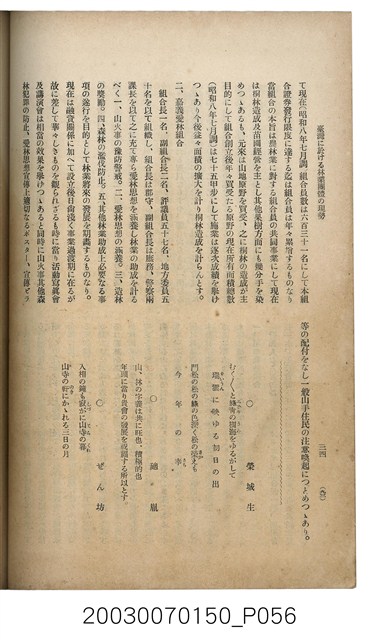 臺灣に於ける林業團體の現勢
て現在(昭和八年七月調)組合員數は六百三十一名にして本組
合證券發行限度に達する迄は組合員は年々累増するものなり
當組合の本旨は農林業に對する組合員の共同事業にして現在
は桐林造成及苗圃經營を主とし其他果樹方面にも幾分手を染
めつゝあるも、元來は山地原野を買受、之に桐林の造成が主
目的にして組合創立後年々買受たる原野の現在所有面積總數
(昭和八年七月調)は七十五甲步にして施業は逐次成績を擧げ
つゝあり今後益々面積の擴大を計り桐林造成を計らんとす。
二、嘉義愛林組合
組合長一名、副組合長二名、評議員五十七名、地方委員五
十名を以て組織し、組合長は郡守、副組合長は庶務、警察兩
課長を以て之に充て專ら愛林思想を涵養し林業の助成を計る
べく一、山火事の豫防警戒。二、愛林思想の涵養。三、造林
の奬勵。四、森林の濫伐防止。五、其他林業助成上必要なる事
項の遂行を目的として林業將來の發展を期圖するものなり。
現在は融資關係に加へて設立後日尚淺く事業過渡期に在るが
故に差して華々しきものを觀られざるも時に當り活動寫眞會
及講演會は相當の效果を擧げつゝあると同時に山火事其他森
林犯罪の防止、愛林思想宣傳上適切なるポスター、宣傳ビラ
三四
等の配付をなし一般山手住民の注意喚起につとめつゝあり。
○
榮城生
瑞雲に映ゆる初日の出
門松の松の綠の色深く松の榮えも
今年の幸
○
年頭に當り我會の發展を祝福する所以とす
○ ぜん坊
入相の鐘も寂かに山寺の暮
山寺の軒にかゝれる三日の月
20030070150_P056